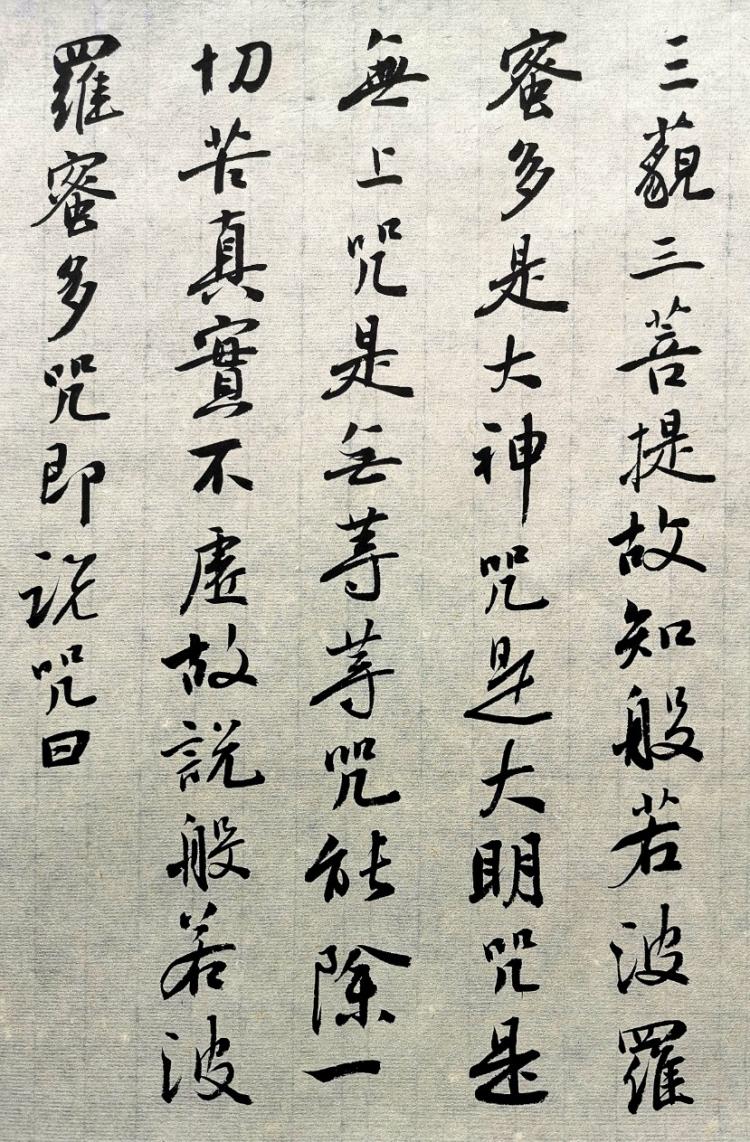 三藐三菩提故知般若波羅
蜜多是大神咒是大明咒是
無上咒是無等等咒能除一
切苦真實不虛故說般若波
羅蜜多咒即說咒曰